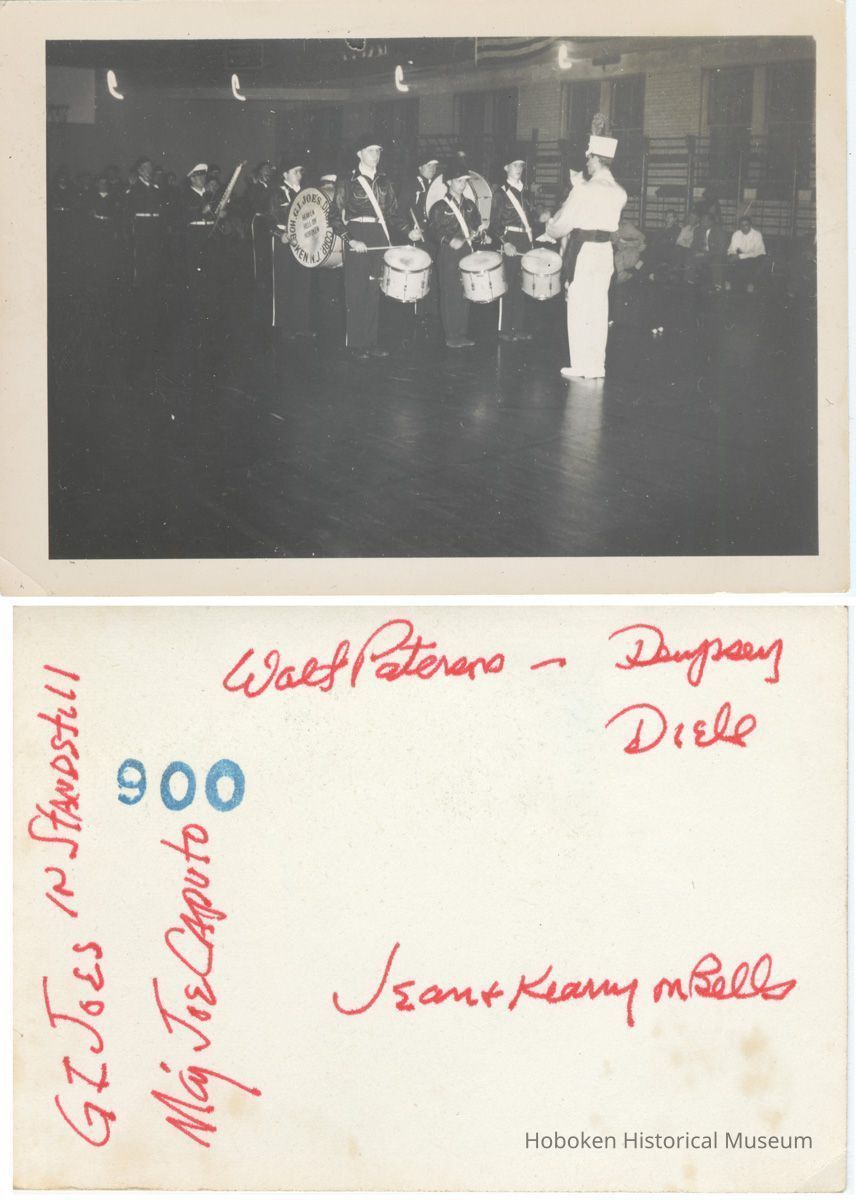 G.I. JOES
CORP.
HOBOKEN, N.J.
Walt Peterson — Dempsey
Diele
900
GI JOES IN STANDSTILL
Maj JOE CAPUTO
Jean + Kearny on Bells
Hoboken Historical Museum